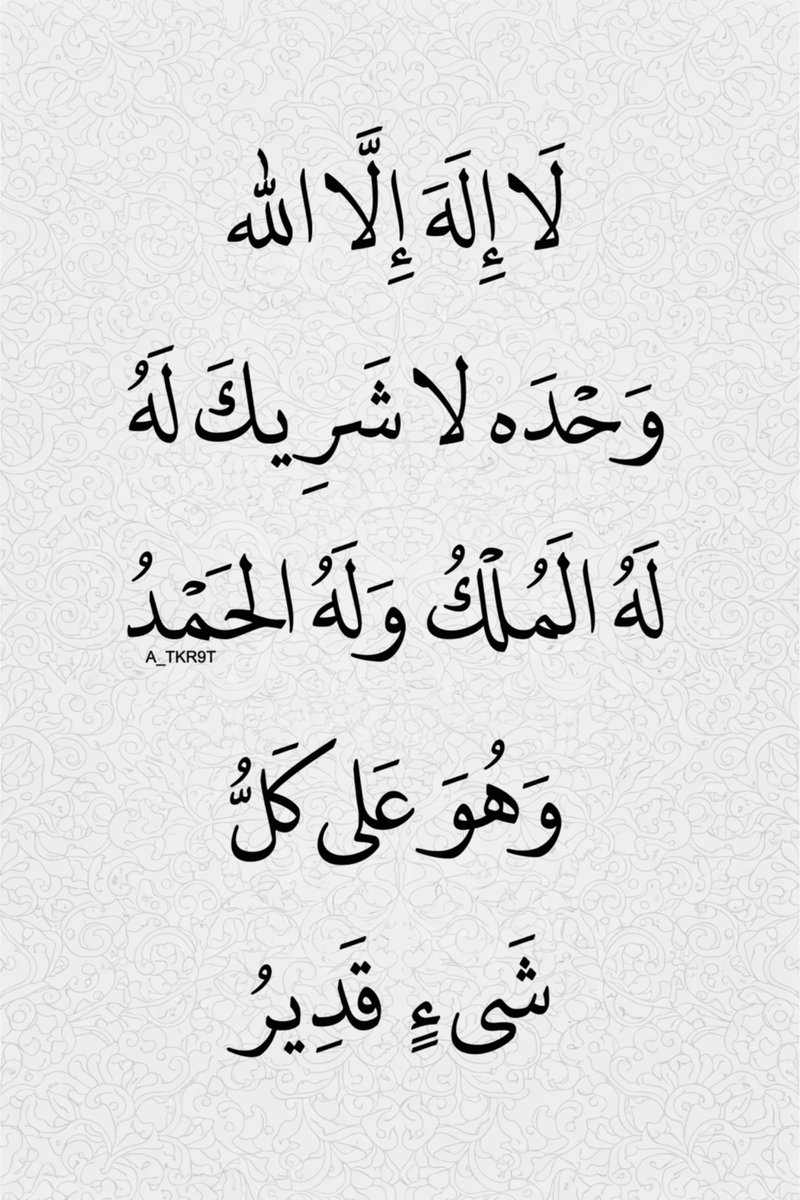 لَا إِلَهَ إِلَّا الله
وَحْدَه لا شَرِيكَ لَهُ
لَهُ الَمُلْكُ وَلَهُ الحَمْدُ
A_TKR9T
وَهُوَ عَلى كَلُّ
شَىءٍ قَدِيرُ